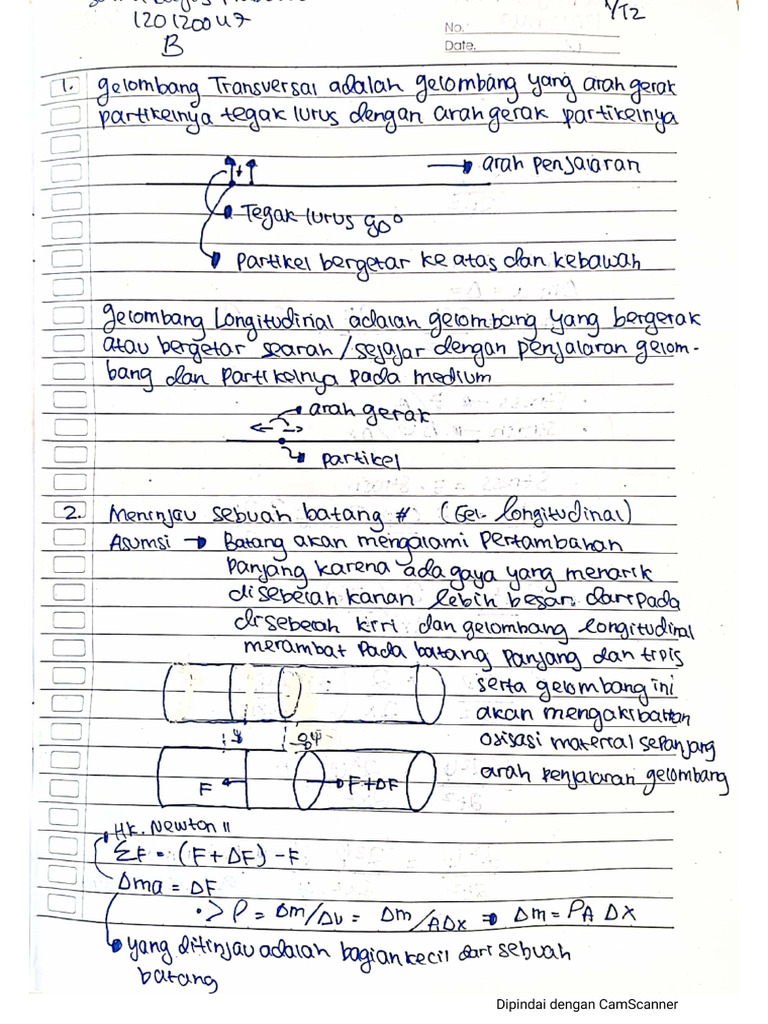 120120047
B
YT2
No.
Date.
1. gelombang Transversal adalah gelombang yang arah gerak
partikelnya tegak lurus dengan arah gerak partikelnya
arah penjalaran
Tegak lurus 90°
Partikel bergetar ke atas dan kebawah
gelombang Longitudinal adalah gelombang yang bergerak
atau bergetar searah/sejajar dengan penjalaran gelom-
bang dan partikelnya pada medium
arah gerak
partikel
2. Meninjau sebuah batang # (Gel. longitudinal)
Asumsi → Batang akan mengalami pertambahan
panjang karena ada gaya yang menarik
disebelah kanan lebih besar daripada
disebelah kiri dan gelombang longitudinal
merambat pada batang panjang dan tipis
serta gelombang ini
akan mengakibatkan
osisasi material sepanjang
arah penjalaran gelombang
F
F+ΔF
Hk. Newton II
ΣF = (F+ΔF) - F
Δma = ΔF
•> ρ = Δm/Δv = Δm/AΔx ⇒ Δm = ρA Δx
yang ditinjau adalah bagian kecil dari sebuah
batang
Dipindai dengan CamScanner